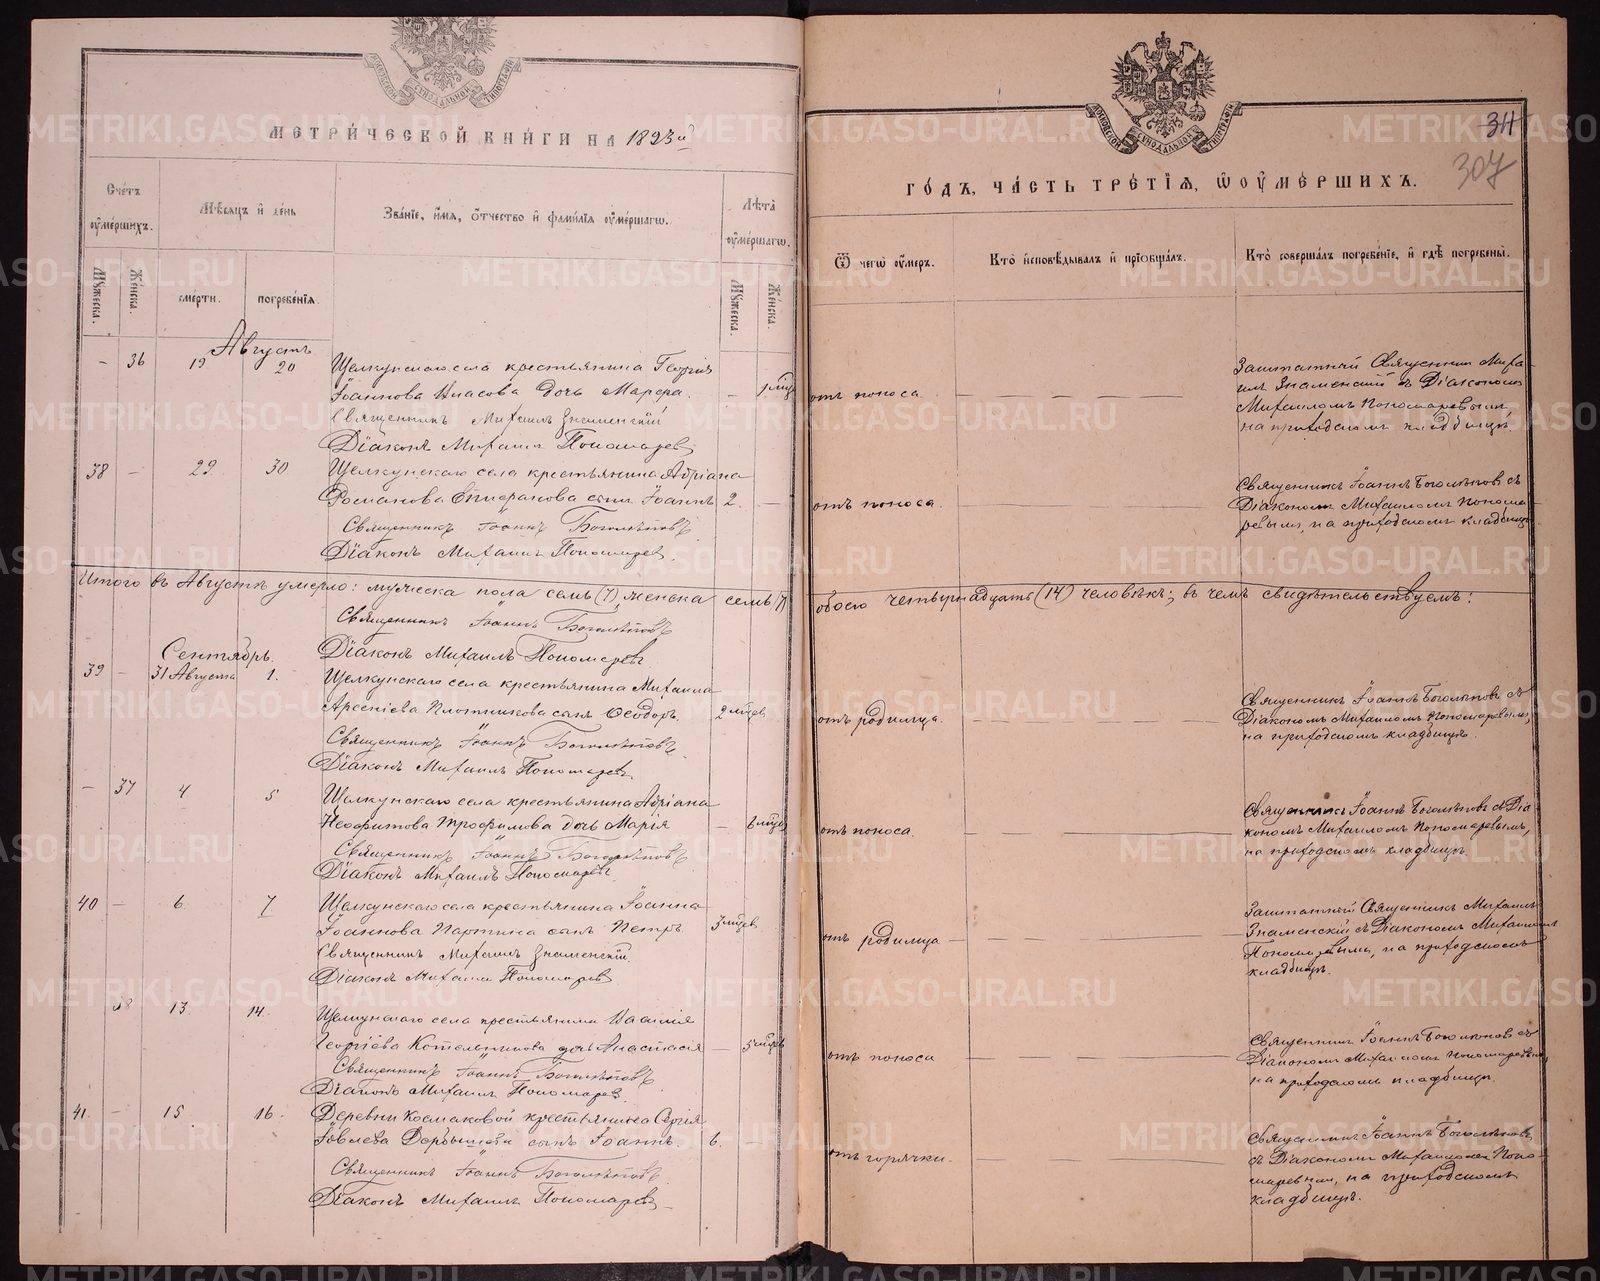 МЕТРИЧЕСКОЙ КНИГИ НА 1893й
Счетъ умершихъ.
Мѣсяцъ и день
Званіе, имя, отчество и фамилія умершаго.
Лѣта умершаго.
Мужеска.
Женска.
смерти.
погребенія.
Мужеска.
Женска.
Августъ
— 36 19 20 Щелкунскаго села крестьянина Георгія
Іоаннова дочь —
Священникъ Михаилъ Знаменскій
Діаконъ Михаилъ Пономарев
38 — 29 30 Щелкунскаго села крестьянина Адріана
Романова сынъ Іоаннъ 2. —
Священникъ Іоаннъ Боголѣповъ
Діаконъ Михаилъ Пономарев
Итого въ Августѣ умерло: мужеска пола семь (7), женска семь (7)
Священникъ Іоаннъ Боголѣповъ
Сентябрь. Діаконъ Михаилъ Пономаревъ
39 — 31 Августа 1. Щелкунскаго села крестьянина Михаила
Арсеніева Плотникова сынъ Ѳеодоръ. 2 мѣсяцев
Священникъ Іоаннъ Боголѣповъ
Діаконъ Михаилъ Пономаревъ
— 37 4 5 Щелкунскаго села крестьянина Адріана
Неофитова Трофимова дочь Марія —
Священникъ Іоаннъ Боголѣповъ
Діаконъ Михаилъ Пономаревъ
40 — 6. 7 Щелкунскаго села крестьянина Іоанна
Іоаннова сынъ Петръ
Священникъ Михаилъ Знаменскій.
Діаконъ Михаилъ Пономарев
38 13 14. Щелкунскаго села крестьянина
Георгіева Котельникова дочь Анастасія —
Священникъ Іоаннъ Боголѣповъ
Діаконъ Михаилъ Пономарев
41. — 15 16. Деревни Космаковой крестьянина Сергія
сынъ Іоаннъ. 6. —
Священникъ Іоаннъ Боголѣповъ
Діаконъ Михаилъ Пономарев
МОСКОВСКОЙ СѴНОДАЛЬНОЙ ТИПОГРАФІИ
311
307
ГОДЪ, ЧАСТЬ ТРЕТІЯ, О УМЕРШИХЪ.
Отъ чего умеръ.
Кто исповѣдывалъ и пріобщалъ.
Кто совершалъ погребеніе, и гдѣ погребены.
отъ поноса — — — —
Заштатный Священникъ Миха-
илъ Знаменскій съ Діакономъ
Михаиломъ Пономаревымъ,
на приходскомъ кладбищѣ.
отъ поноса. — — —
Священникъ Іоаннъ Боголѣповъ съ
Діакономъ Михаиломъ Понома-
ревымъ, на приходскомъ кладбищѣ.
обоего четырнадцать (14) человѣкъ; въ чемъ свидѣтельствуемъ:
отъ родимца. — — — —
Священникъ Іоаннъ Боголѣповъ съ
Діакономъ Михаиломъ Пономаревымъ,
на приходскомъ кладбищѣ.
отъ поноса. — — — —
Священникъ Іоаннъ Боголѣповъ съ Діа-
кономъ Михаиломъ Пономаревымъ,
на приходскомъ кладбищѣ.
отъ родимца — — — —
Заштатный Священникъ Михаилъ
Знаменскій съ Діакономъ Михаиломъ
Пономаревымъ, на приходскомъ
кладбищѣ.
отъ поноса — — — —
Священникъ Іоаннъ Боголѣповъ съ
Діакономъ Михаиломъ Пономаревымъ,
на приходскомъ кладбищѣ.
отъ горячки. — — — —
Священникъ Іоаннъ Боголѣповъ,
съ Діакономъ Михаиломъ Поно-
маревымъ, на приходскомъ
кладбищѣ.
METRIKI.GASO-URAL.RU